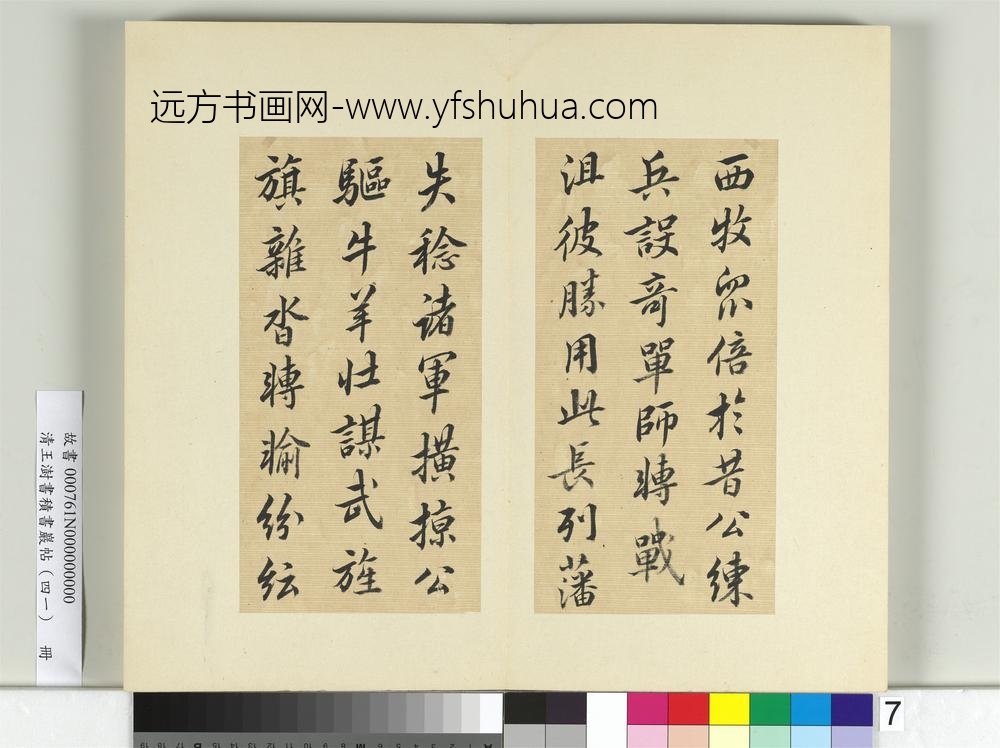 远方书画网-www.yfshuhua.com
西牧眾倍於昔公練
兵設奇單師轉戰
沮彼勝用此長列藩
失稔諸軍撗掠公
驅牛羊壯謀武旌
旗雜沓轉輸紛紜
故書 000761N000000000
清王澍書積書巖帖（四一） 冊
7